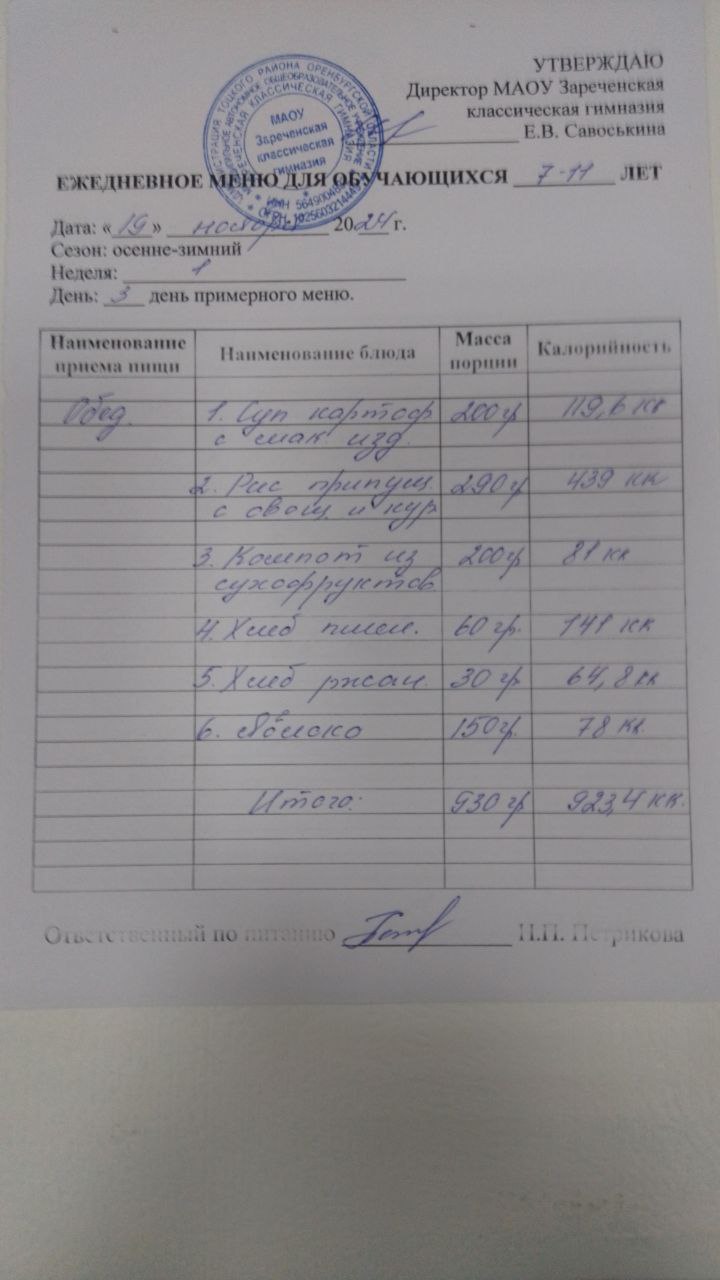 УТВЕРЖДАЮ
Директор МАОУ Зареченская
классическая гимназия
Е.В. Савоськина
МАОУ
Зареченская
классическая
гимназия
ЕЖЕДНЕВНОЕ МЕНЮ ДЛЯ ОБУЧАЮЩИХСЯ 7-11 ЛЕТ
Дата: «19» ноября 2024 г.
Сезон: осенне-зимний
Неделя: 1
День: 3 день примерного меню.
Наименование приема пищи Наименование блюда Масса порции Калорийность
Обед. 1. Суп картоф 200 гр 119,6 кк
с мак. изд.
2. Рис припущ 290 гр 439 кк
с овощ и кур
3. Компот из 200 гр 81 кк
сухофруктов
4. Хлеб пшен. 60 гр. 141 кк
5. Хлеб ржан. 30 гр 64,8 кк
6. Яблоко 150 гр. 78 кк.
Итого: 930 гр 923,4 кк.
Ответственный по питанию Н.П. Петрикова